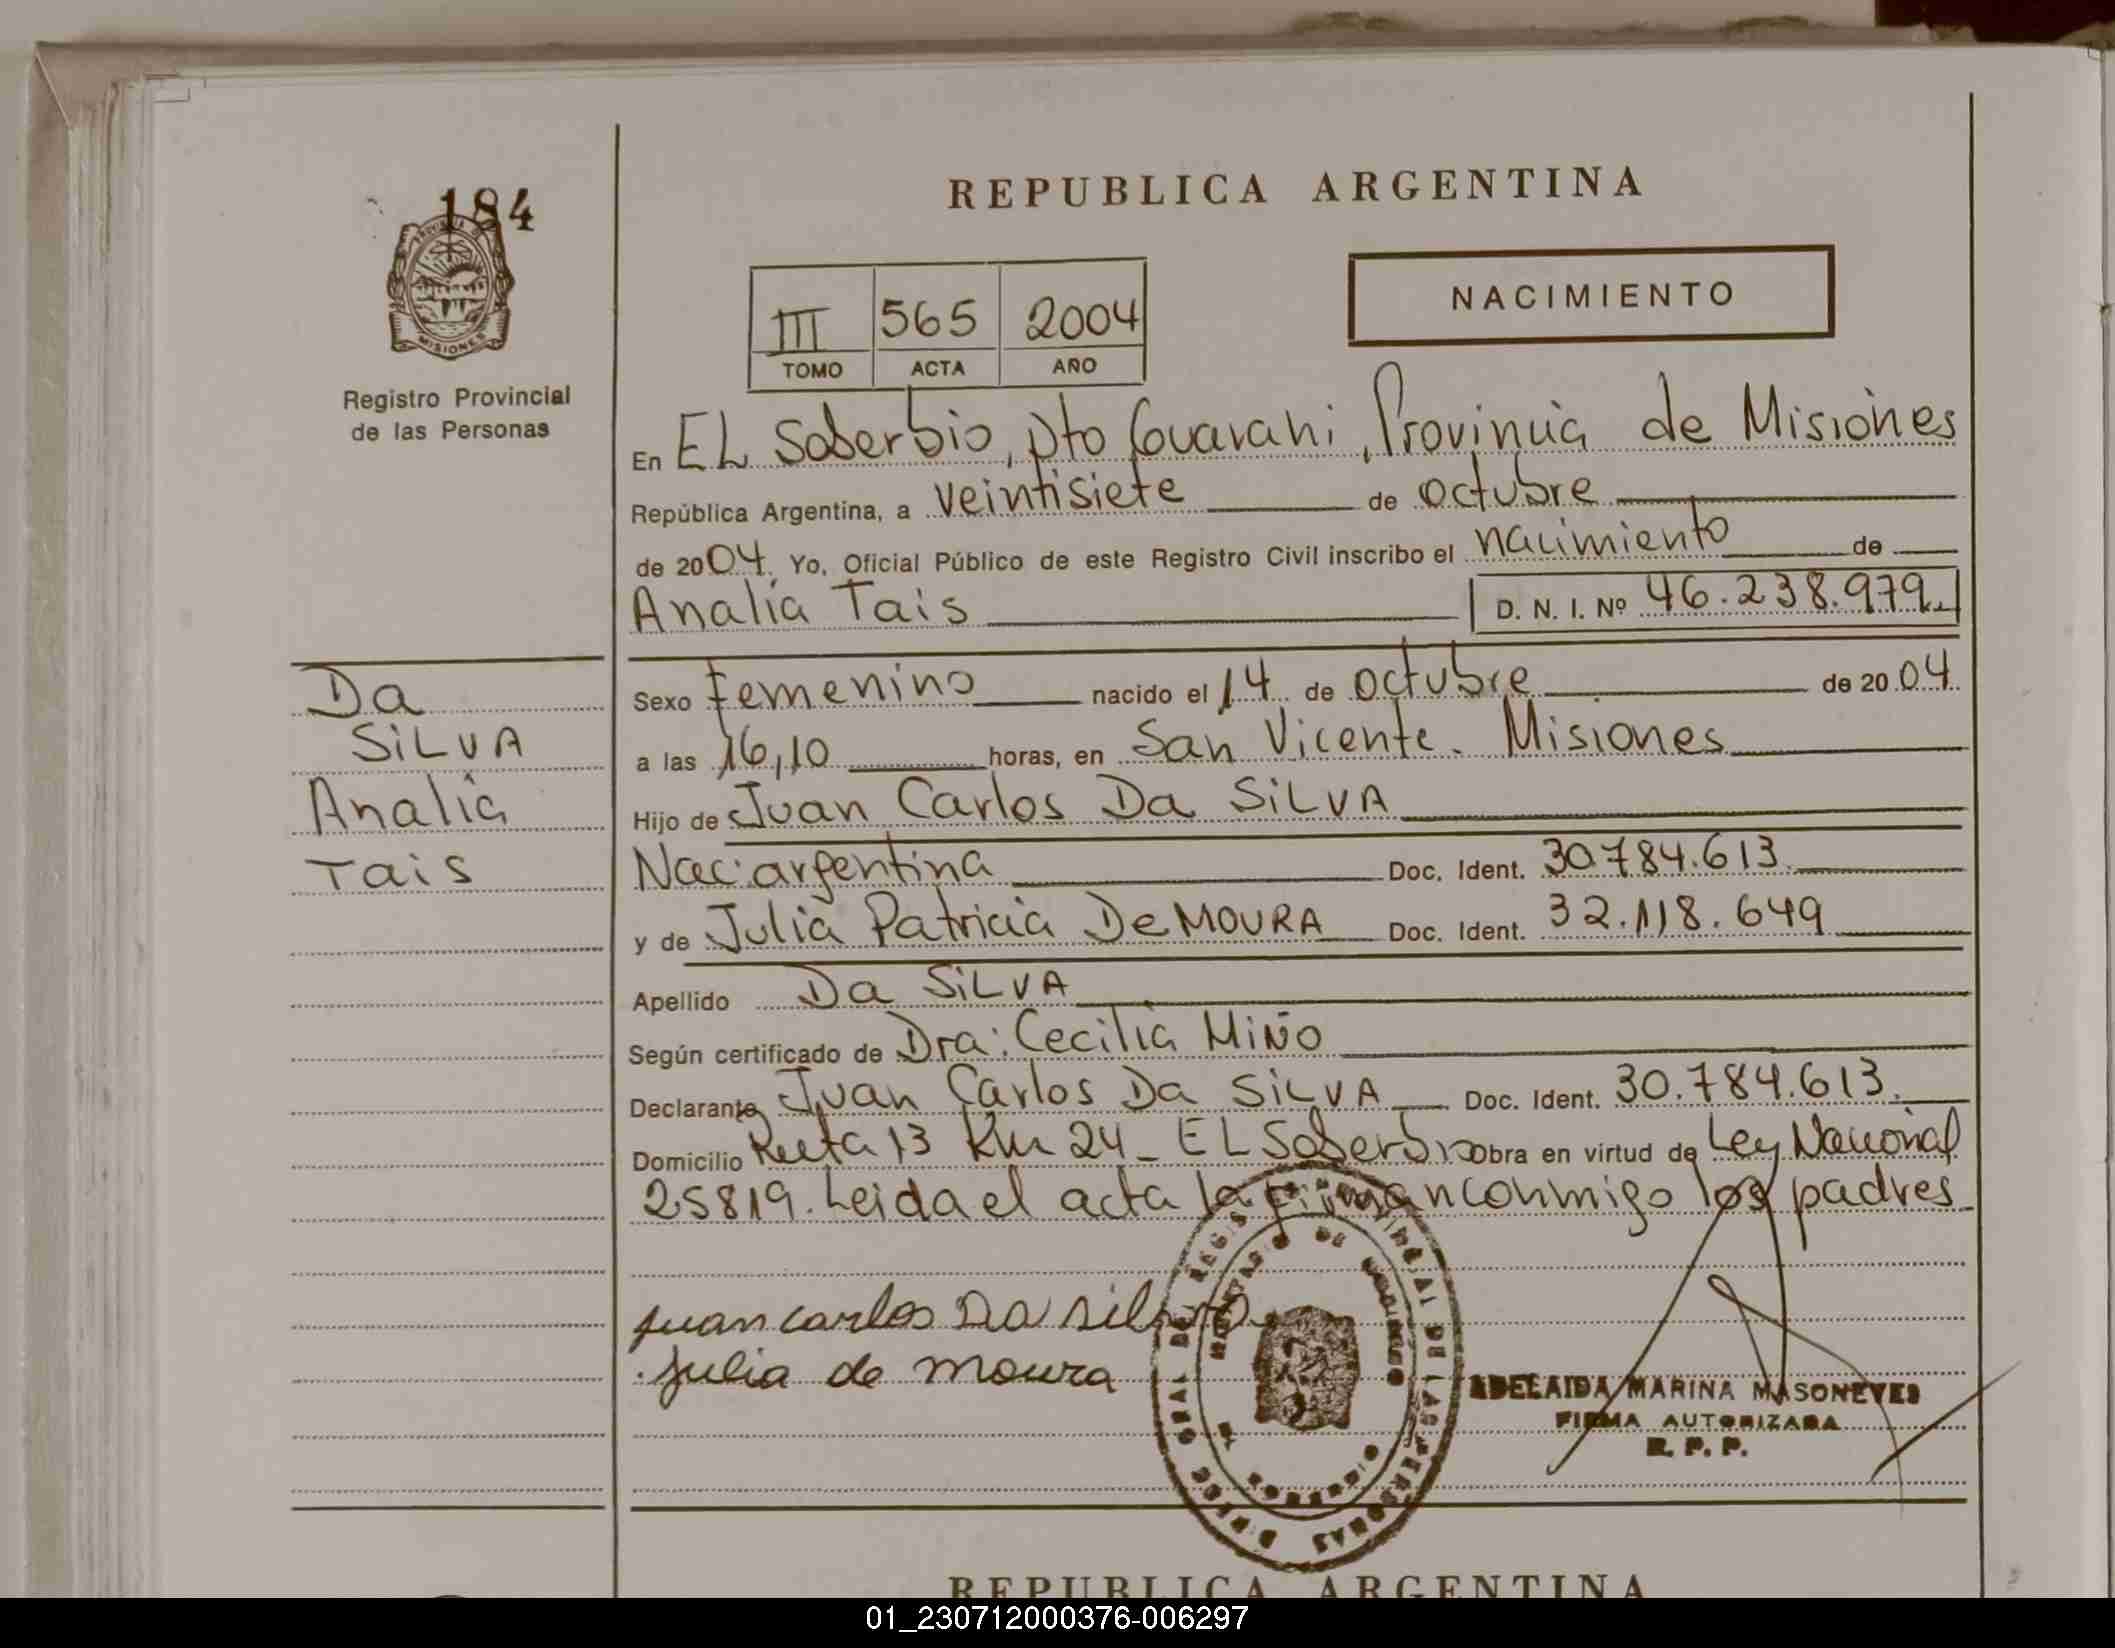 184
REPUBLICA ARGENTINA
NACIMIENTO
III 565 2004
TOMO ACTA AÑO
PROVINCIA DE
MISIONES
Registro Provincial
de las Personas
En EL Soberbio, Dto Guarani, Provincia de Misiones
República Argentina, a veintisiete de octubre
de 2004. Yo, Oficial Público de este Registro Civil inscribo el nacimiento de
Analía Tais D. N. I. Nº 46.238.979
Da
SiLVA
Analía
Tais
Sexo Femenino nacido el 14 de octubre de 2004
a las 16,10 horas, en San Vicente. Misiones
Hijo de Juan Carlos Da SiLVA
Nac: argentina Doc. Ident. 30.784.613.
y de Julia Patricia De MOURA Doc. Ident. 32.118.649
Apellido Da SiLVA
Según certificado de Dra: Cecilia MiÑO
Declarante Juan Carlos Da SiLVA Doc. Ident. 30.784.613.
Domicilio Ruta 13 Km 24 - EL Soberbio obra en virtud de Ley Nacional
25819. Leida el acta la firman conmigo los padres
juan carlos Da silva
julia de moura
ADELAIDA MARINA MASONEVES
FIRMA AUTORIZADA
R. P. P.
REPUBLICA ARGENTINA
01_230712000376-006297